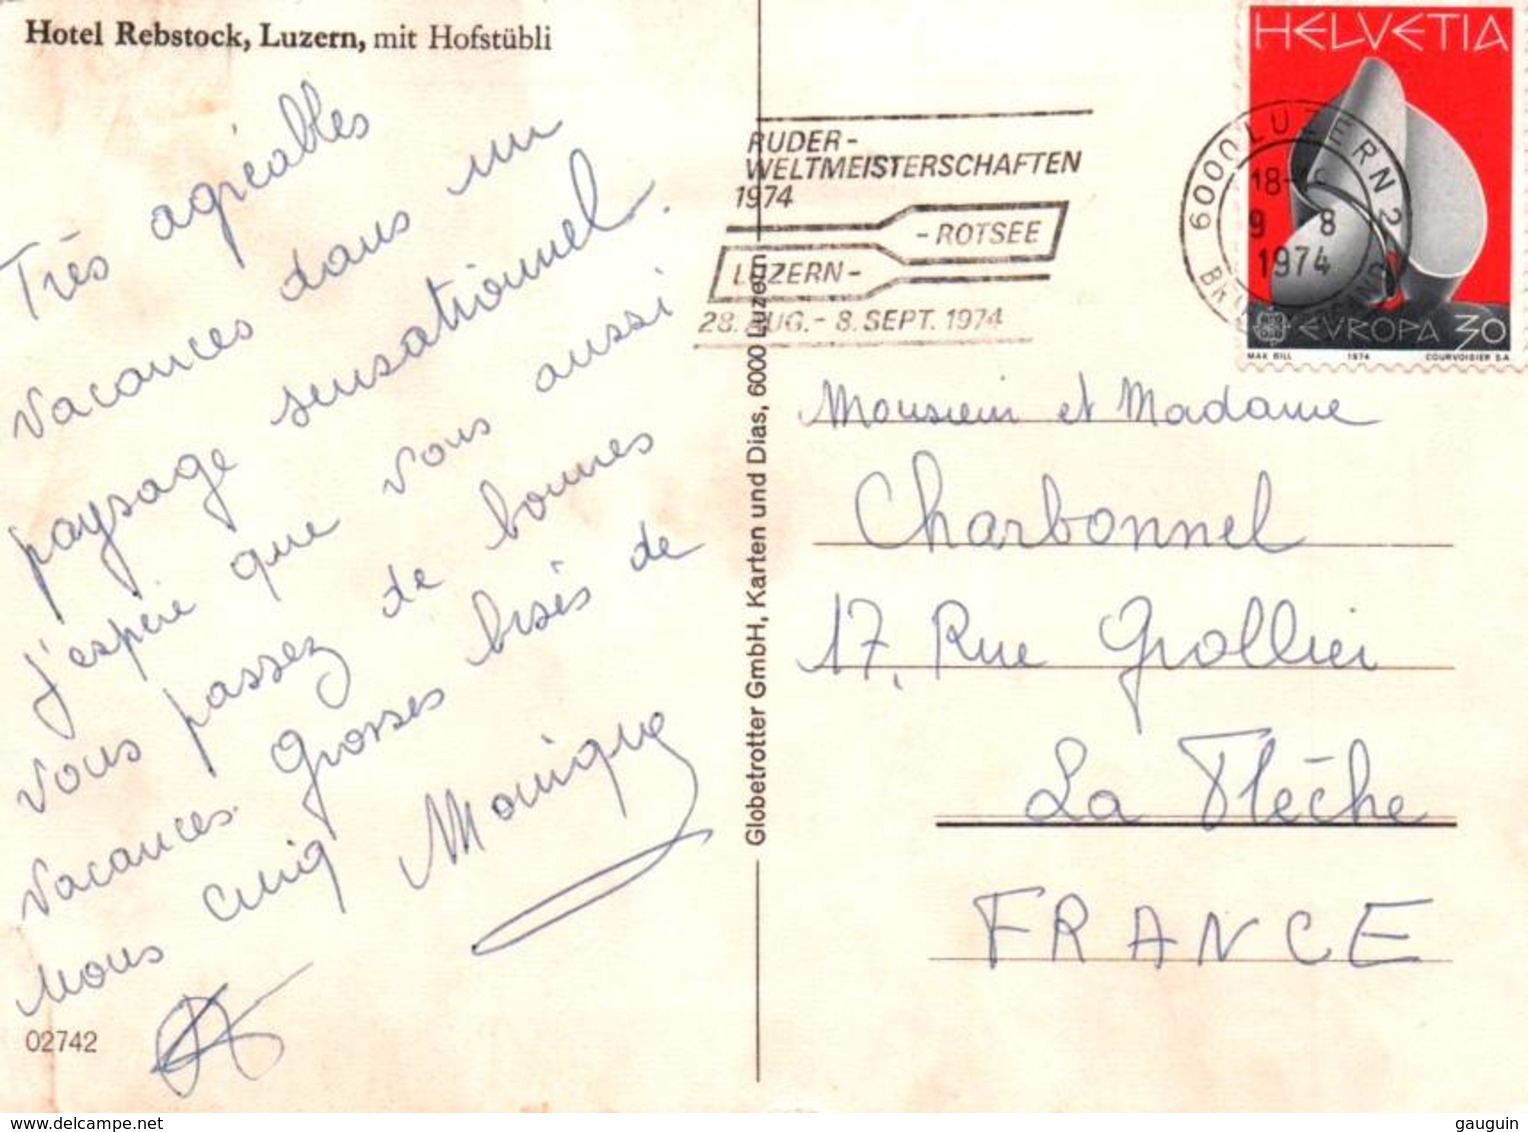 Hotel Rebstock, Luzern, mit Hofstübli
Très agréables
vacances dans un
paysage sensationnel.
j'espère que vous aussi
vous passez de bonnes
vacances. Grosses bisés de
nous cinq Monique
02742
Globetrotter GmbH, Karten und Dias, 6000 Luzern
RUDER-
WELTMEISTERSCHAFTEN
1974
-ROTSEE
LUZERN-
28. AUG. - 8. SEPT. 1974
6000 LUZERN 2
18-
9 8
1974
HELVETIA
EVROPA 30
MAX BILL 1974 COURVOISIER S.A
Monsieur et Madame
Charbonnel
17, Rue Grollier
La Flèche
FRANCE
www.delcampe.net
gauguin